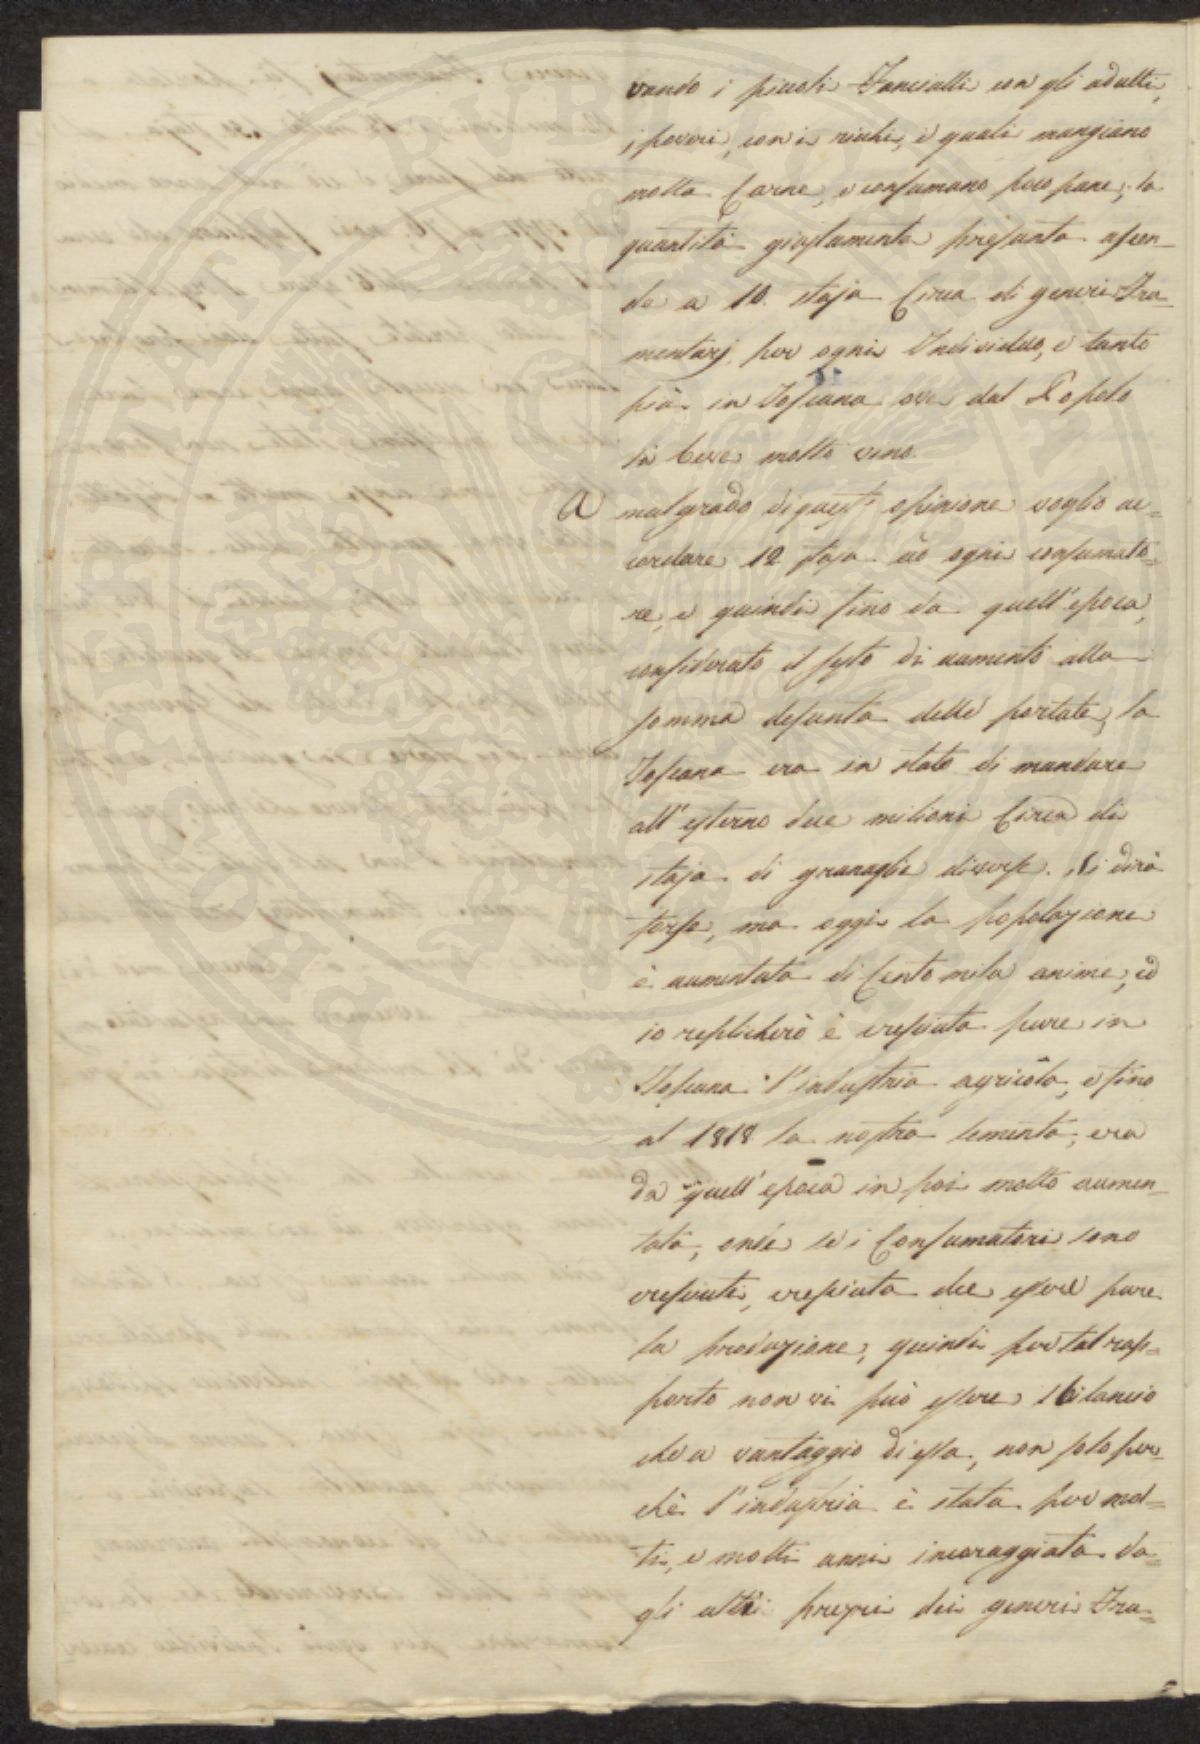 vando i piccoli Fanciulli con gli adulti,
i poveri, con i ricchi, i quali mangiano
molta Carne, e consumano poco pane; la
quantità giustamente presunta ascen-
de a 10. staja Circa di generi Fru-
mentarj per ogni Individuo, e tanto
più in Toscana ove dal Popolo
si beve molto vino.
A malgrado di quest' opinione voglio ac-
cordare 12 staja ad ogni consumato-
re, e quindi fino da quell' epoca,
considerato il sesto di aumento alla
somma desunta delle portate, la
Toscana era in stato di mandare
all' esterno due milioni Circa di
staja di granaglie diverse. Si dirà
forse, ma oggi la popolazione
è aumentata di Cento mila anime, ed
io replicherò è cresciuta pure in
Toscana l'industria agricola, e fino
al 1818 la nostra sementa, era
da quell' epoca in poi molto aumen-
tata, onde se i Consumatori sono
cresciuti, cresciuta dee essere pure
la produzione, quindi per tal rap-
porto non vi può essere sbilancio
che a vantaggio di essa, non solo per-
chè l'industria è stata per mol-
ti, e molti anni incoraggiata da-
gli alti prezzi dei generi Fru-